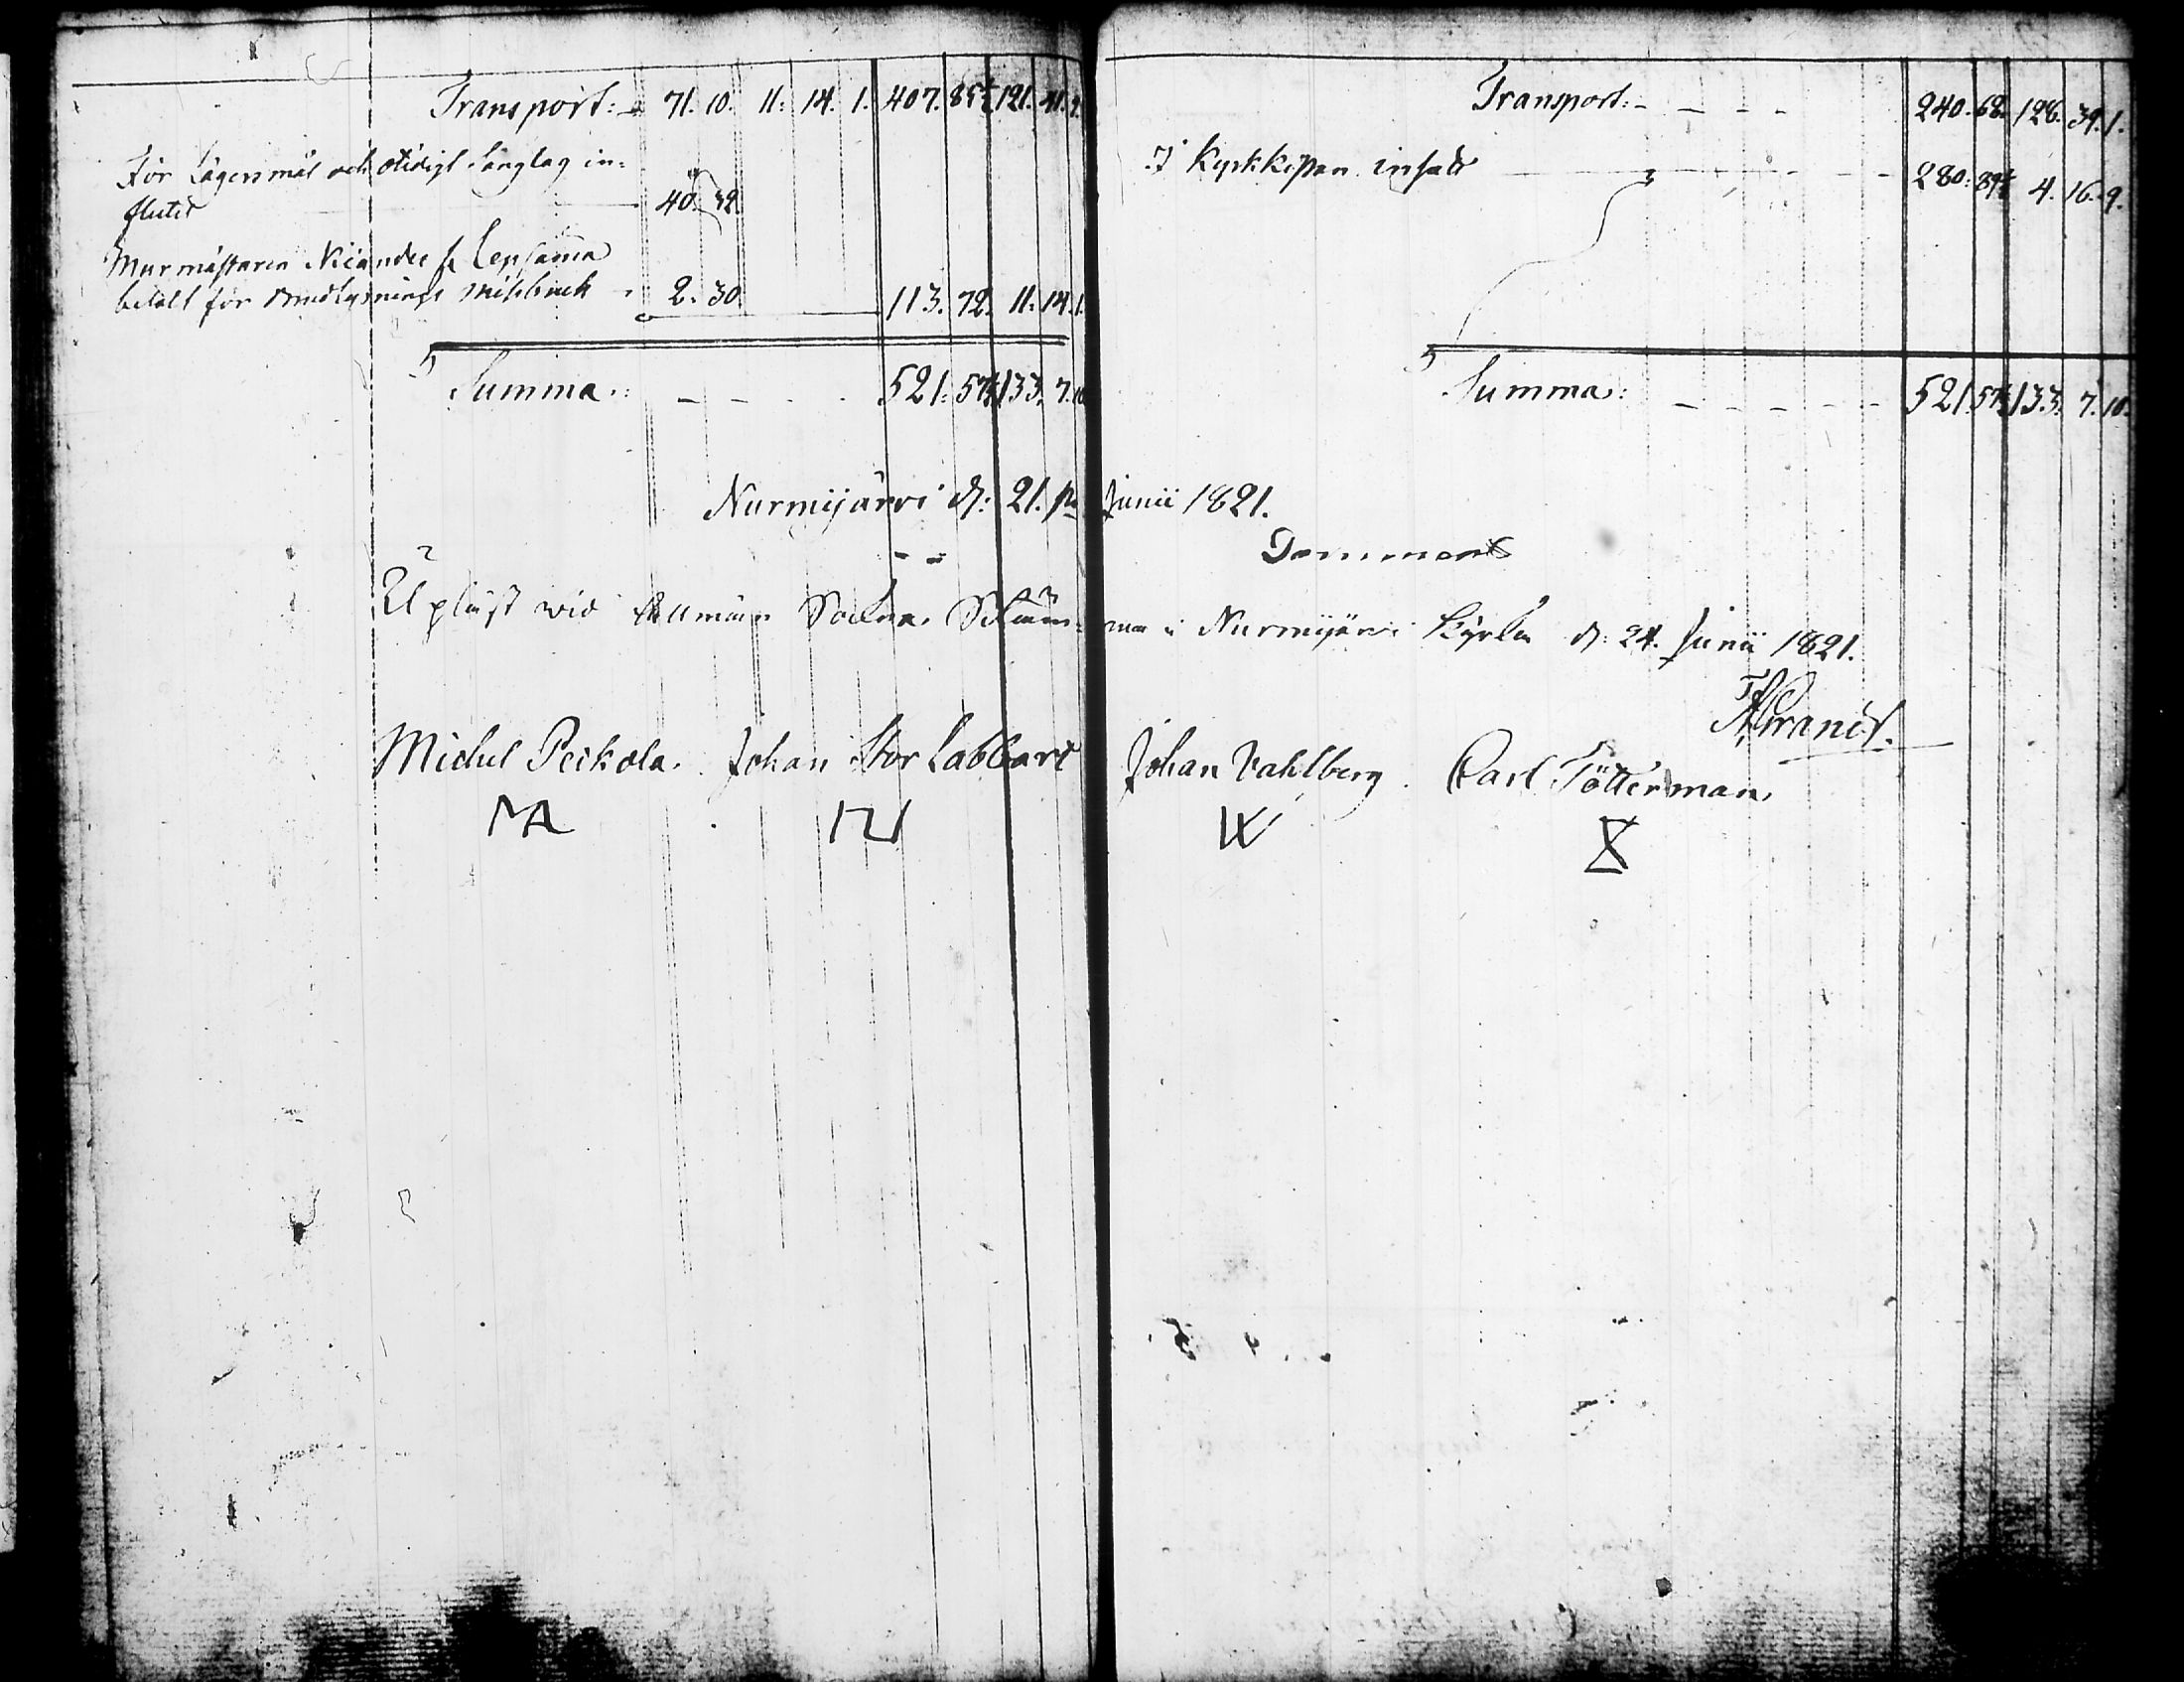 Transport: 71. 10. 11: 14. 1. 407. 85½ 121. 41. 9.
För Lägersmål och otidigt Sänglag in-
flutit 40. 32.
Murmästaren Nicander fr Lepsama
betalt för Brudlysnings missbruk 2. 30. 113. 72. 11: 14. 1.
Summa: 521: 57½ 133. 7. 10
Transport: 240. 68. 128. 39. 1.
I Kyrkkistan insatt 280: 89½ 4. 16. 9.
Summa: 521. 57½ 133. 7. 10.
Nurmijärvi d: 21. Junii 1821.
Upläst wid Allmän Sockne Stämma i Nurmijärvi Kyrka d: 24. Junii 1821.
Michel Peikola. Johan Stor Labbart Johan Vahlberg. Carl Tötterman